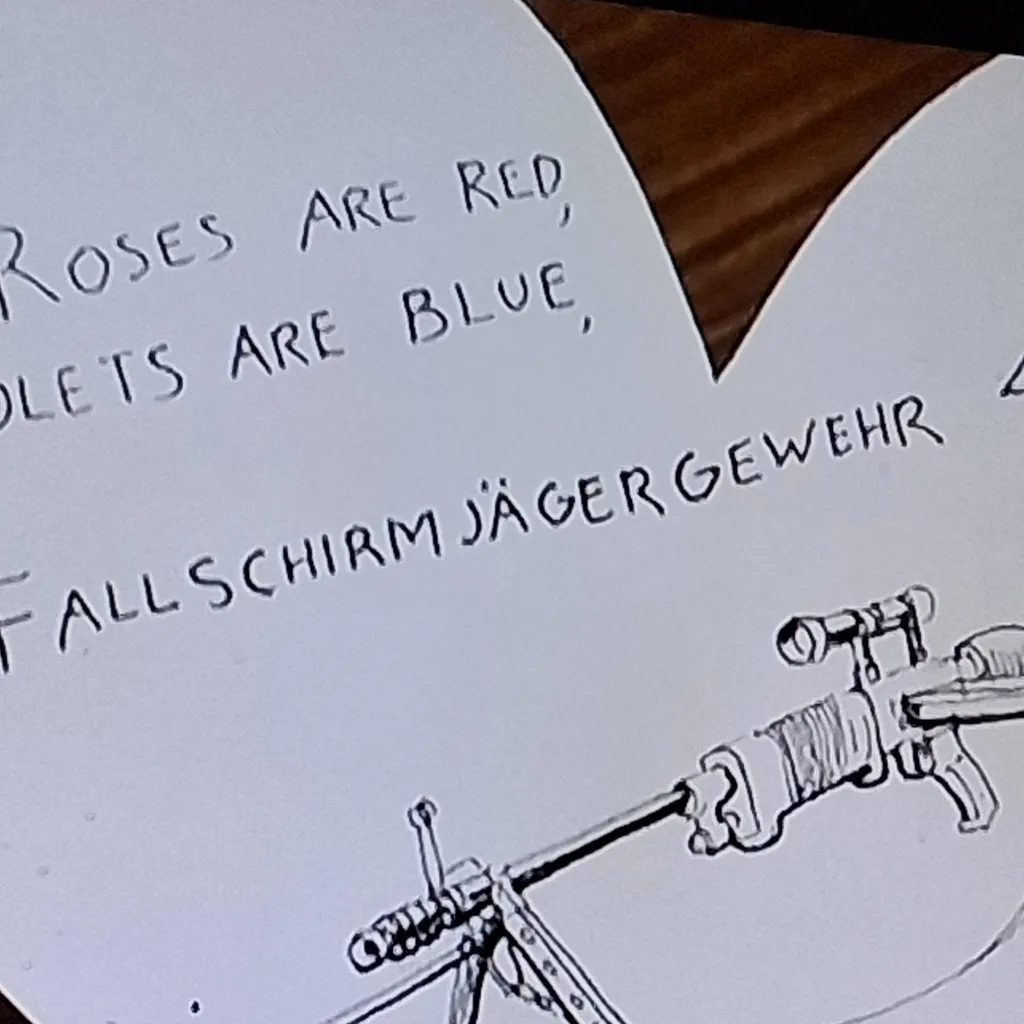 ROSES ARE RED,
OLETS ARE BLUE,
FALLSCHIRMJÄGERGEWEHR